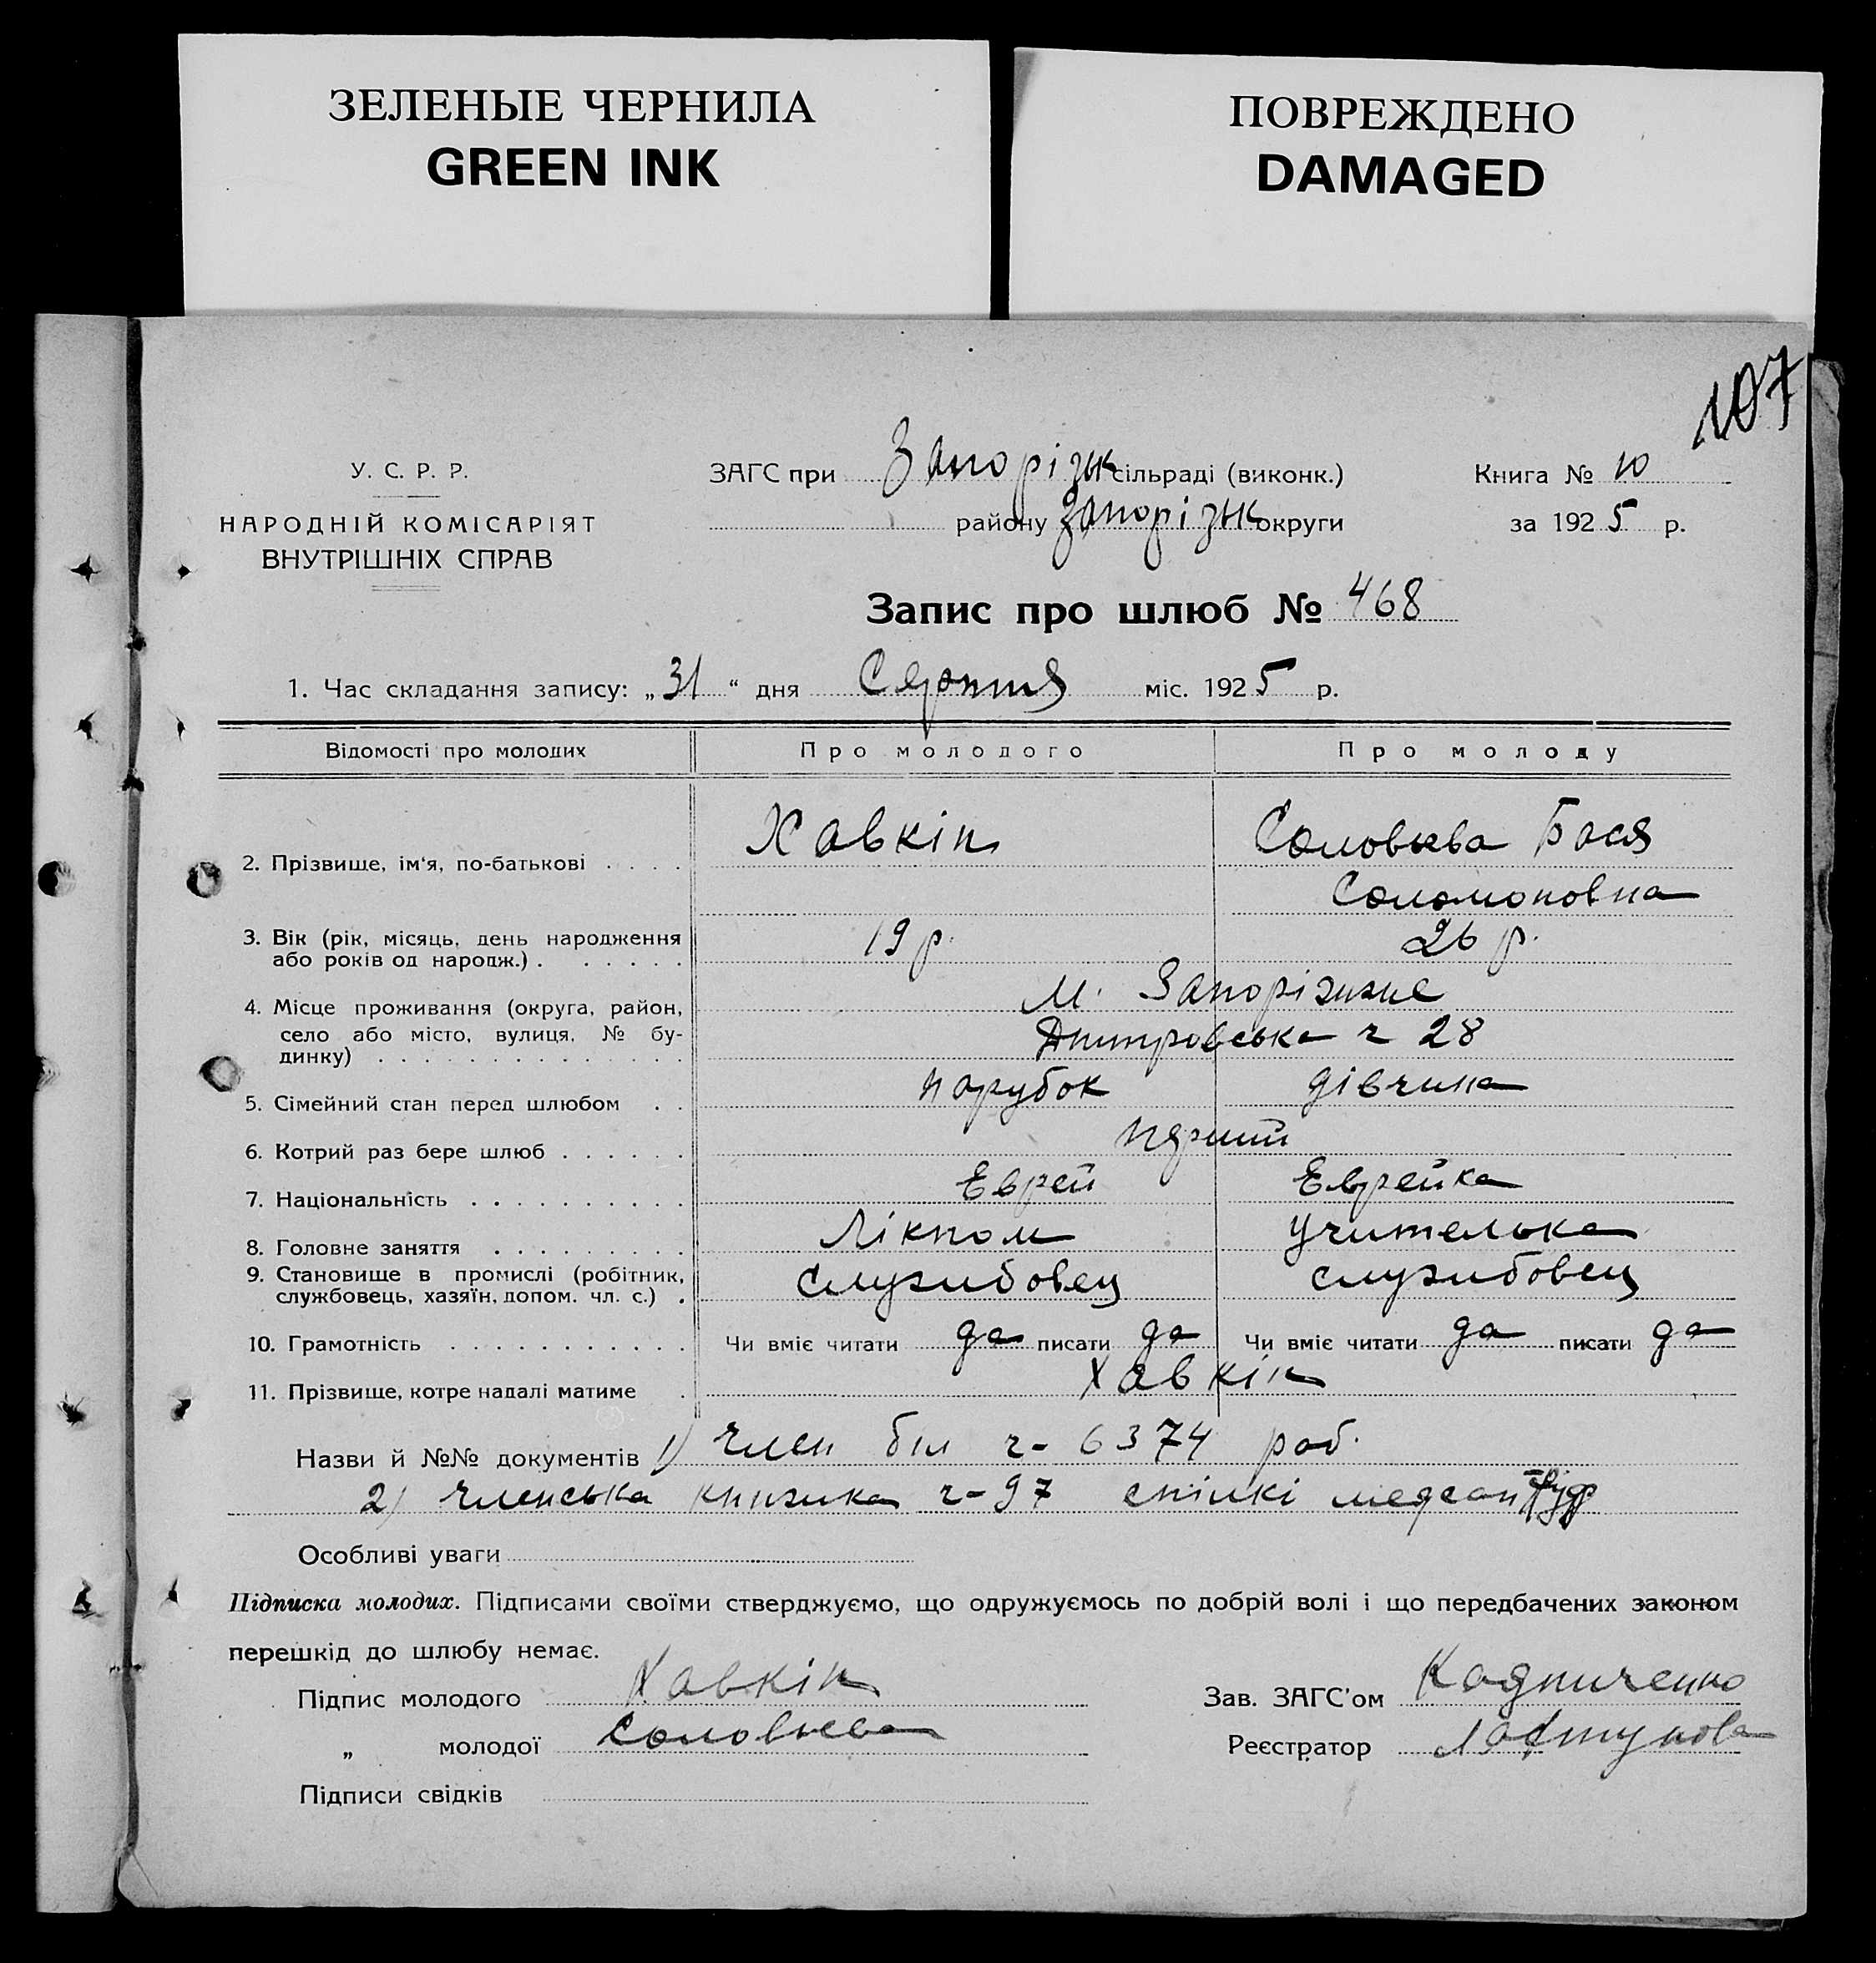 ЗЕЛЕНЫЕ ЧЕРНИЛА
GREEN INK
ПОВРЕЖДЕНО
DAMAGED
107
У. С. Р. Р.
НАРОДНІЙ КОМІСАРІЯТ
ВНУТРІШНІХ СПРАВ
ЗАГС при Запорізьк сільраді (виконк.)
району Запорізьк округи
Книга № 10
за 1925 р.
Запис про шлюб № 468
1. Час складання запису: „31“ дня Серпня міс. 1925 р.
Відомості про молодих Про молодого Про молоду
2. Прізвище, ім'я, по-батькові . . . . Хавкін Соловьева Бася
Соломоновна
3. Вік (рік, місяць, день народження 19 р. 26 р.
або років од народж.) . . . . . .
4. Місце проживання (округа, район, М. Запоріжже
село або місто, вулиця, № бу- Дмитровська ч 28
динку) . . . . . . . . . . . . .
5. Сімейний стан перед шлюбом . . парубок дівчина
6. Котрий раз бере шлюб . . . . . . перший
7. Національність . . . . . . . . . . Еврей Еврейка
8. Головне заняття . . . . . . . . . Лікпом Учителька
9. Становище в промислі (робітник, службовец службовец
службовець, хазяїн, допом. чл. с.) .
10. Грамотність . . . . . . . . . . . Чи вміє читати да писати да Чи вміє читати да писати да
11. Прізвище, котре надалі матиме . Хавкін
Назви й №№ документів 1) Член біл ч- 6374 роб.
2) Членська книжка ч-97 спілкі медсантруд
Особливі уваги
Підписка молодих. Підписами своїми стверджуємо, що одружуємось по добрій волі і що передбачених законом
перешкід до шлюбу немає.
Підпис молодого Хавкін
„ молодої Соловьева
Підписи свідків
Зав. ЗАГС'ом
Реєстратор